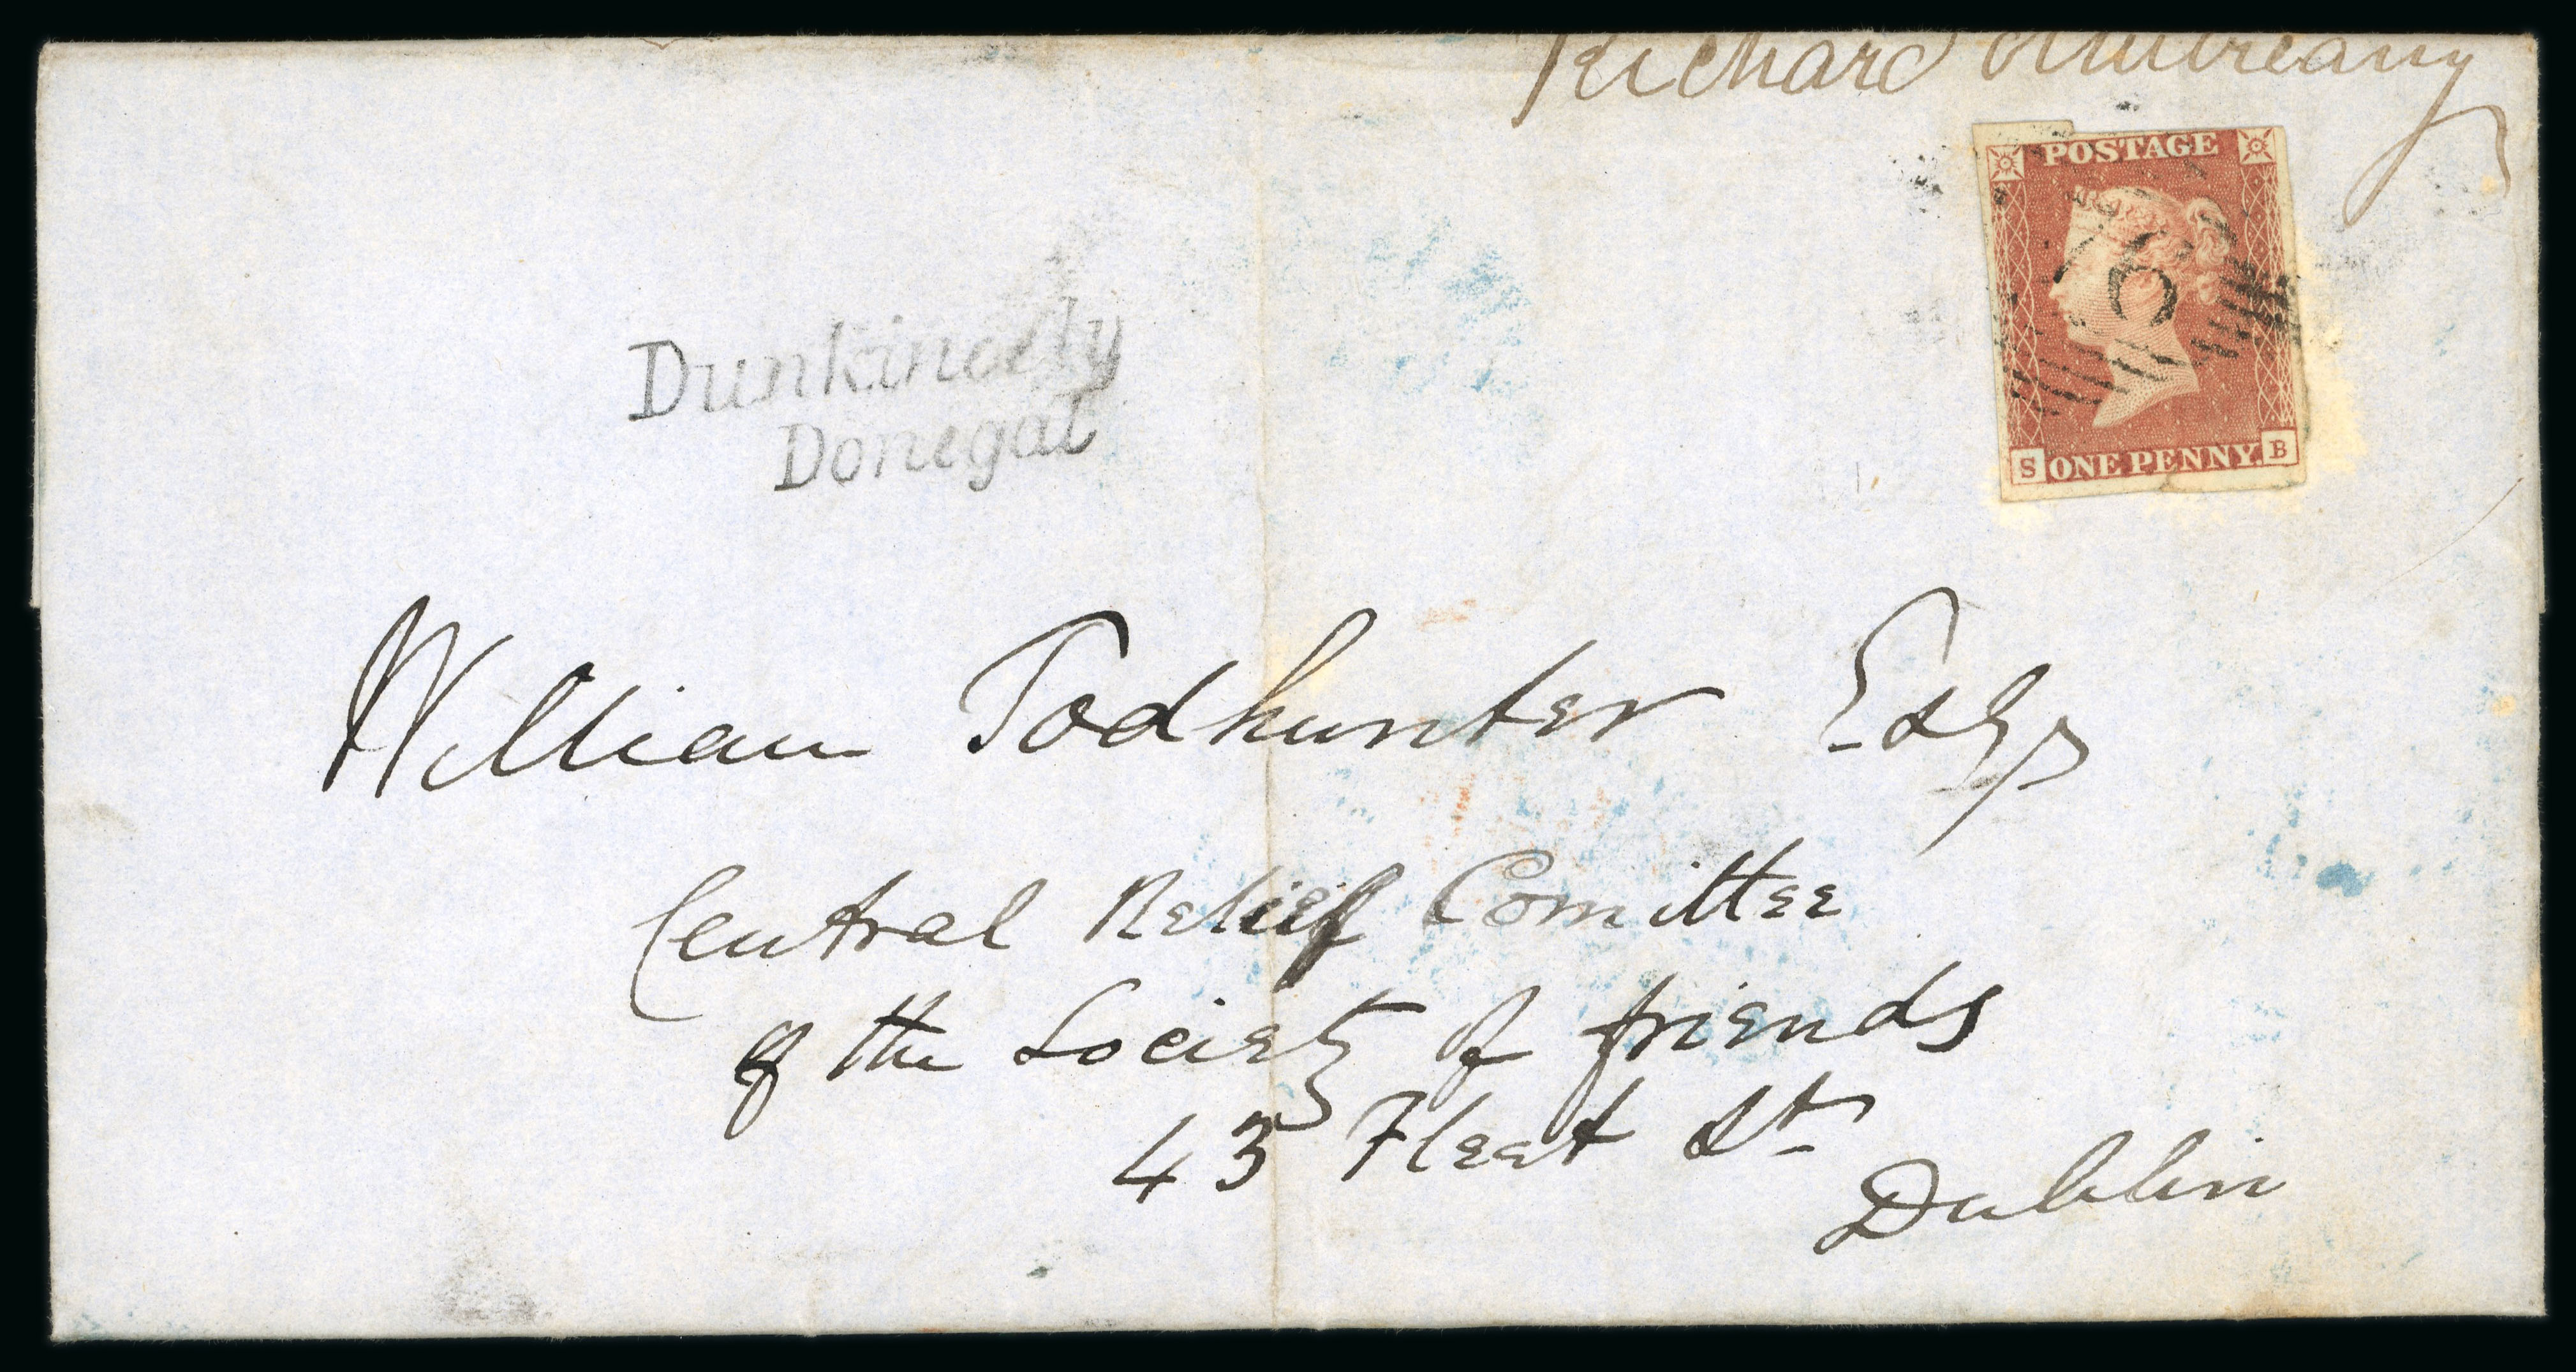 Richard
POSTAGE
6
S ONE PENNY. B
Dunkineely
Donegal
William Todhunter Esqr
Central Relief Comittee
of the Society of friends
43 Fleet St
Dublin